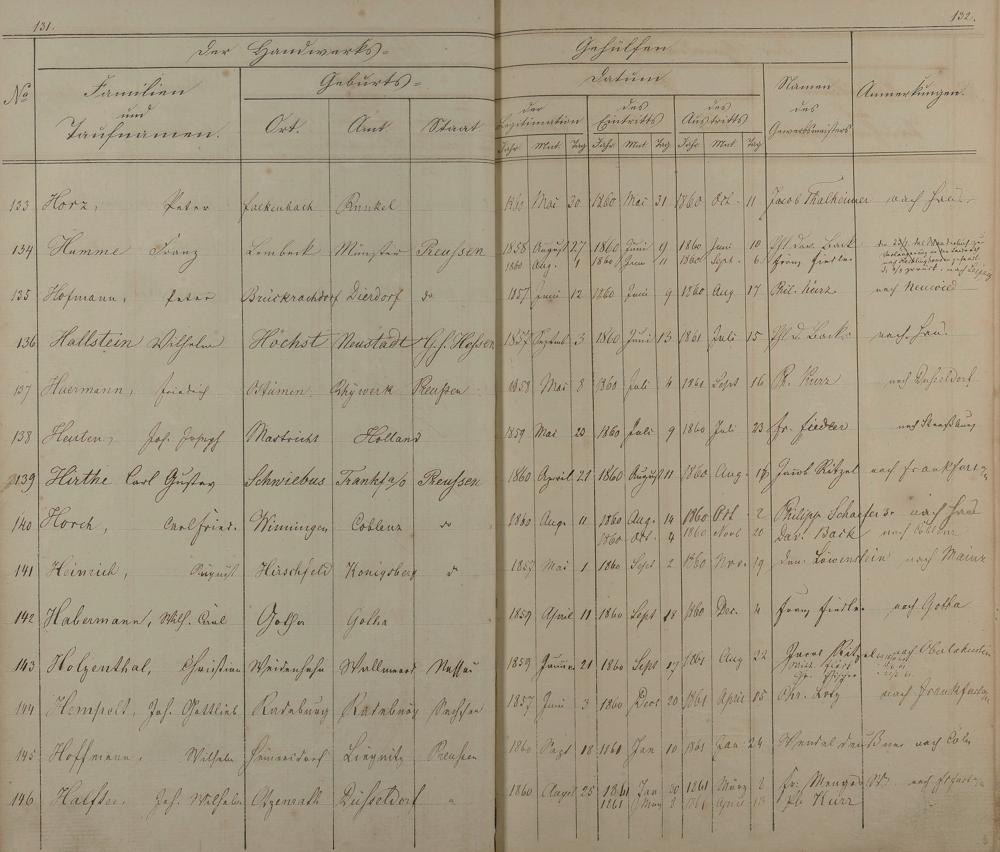 131.
132.
Der Handwerks=
Gehülfen
No
Familien
und
Taufnamen.
Geburts=
Ort.
Amt.
Staat
Datum
der
Legitimation
des
Eintritts
des
Austritts
Jahr Mnt. Tag Jahr Mnt Tag Jahr Mnt Tag
Namen
des
Gewerbsmeisters
Anmerkungen.
133 Horz, Peter Falkenbach Runkel 1860 Mai 30 1860 Mai 31 1860 Oct. 11 Jacob Thalheimer nach Haus
134 Humme Franz Lembeck Münster Preussen 1858 August 27 1860 Juni 9 1860 Juni 10 Phl. Dav. Back
1860 Aug. 1 1860 Juni 11 1860 Sept. 6 Franz Fiedler
135 Hofmann, Peter Brückrachdorf Dierdorf do 1857 Juni 12 1860 Juni 9 1860 Aug 17 Phil. Kurz nach Neuwied
136 Hallstein Wilhelm Höchst Neustadt G.h. Hessen 1857 Septmb 3 1860 Juni 13 1861 Juli 15 Phl. D. Back nach Haus
137 Haermann, Friedrich Preussen 1858 Mai 8 1860 Juli 4 1860 Sept 16 Ph. Kurz nach Düsseldorf
138 Heuten, Joh. Joseph Mastricht Holland 1859 Mai 20 1860 Juli 9 1860 Juli 23 Fr. Fiedler nach Strassburg
139 Hirthe Carl Gustav Schwiebus Frankf a/o Preussen 1860 April 21 1860 August 11 1860 Aug. Jacob Ritzel nach Frankfort
140 Horch, Carl Fried. Winningen Coblenz do 1860 Aug. 11 1860 Aug. 14 1860 Oct. 2 Philipp Schaefer nach Haus
1860 Oct. 4 1860 Novb 20 Dav. Back nach Coblenz
141 Heinrich, August Hirschfeld Königsberg do 1857 Mai 1 1860 Sept 2 1860 Nov. 19 Löwenstein nach Mainz
142 Habermann, Wilh. Carl Gotha Gotha 1859 April 11 1860 Sept 18 1860 Dec. 4 Franz Fiedler nach Gotha
143 Holzenthal, Christian Weidenhahn Wallmerod Nassau 1859 Januar 21 1860 Sept 17 1861 Aug 22 Jacob Ritzel nach Oberlahnstein
144 Hempelt, Joh. Gottlieb Radeburg Radeburg Sachsen 1857 Juni 3 1860 Decb 20 1861 April 15 Chr. Lotz nach Frankfurt
145 Hoffmann, Wilhelm Liegnitz Preussen 1860 Sept 18 1861 Jan 10 1861 Jan 24 Wendel nach Cöln
146 Halfter, Joh. Wilhelm Otzenrath Düsseldorf " 1860 August 25 1861 Jan 30 1861 März 2 Fr. Menges
1861 März 2 1861 April 13 Ph. Kurz